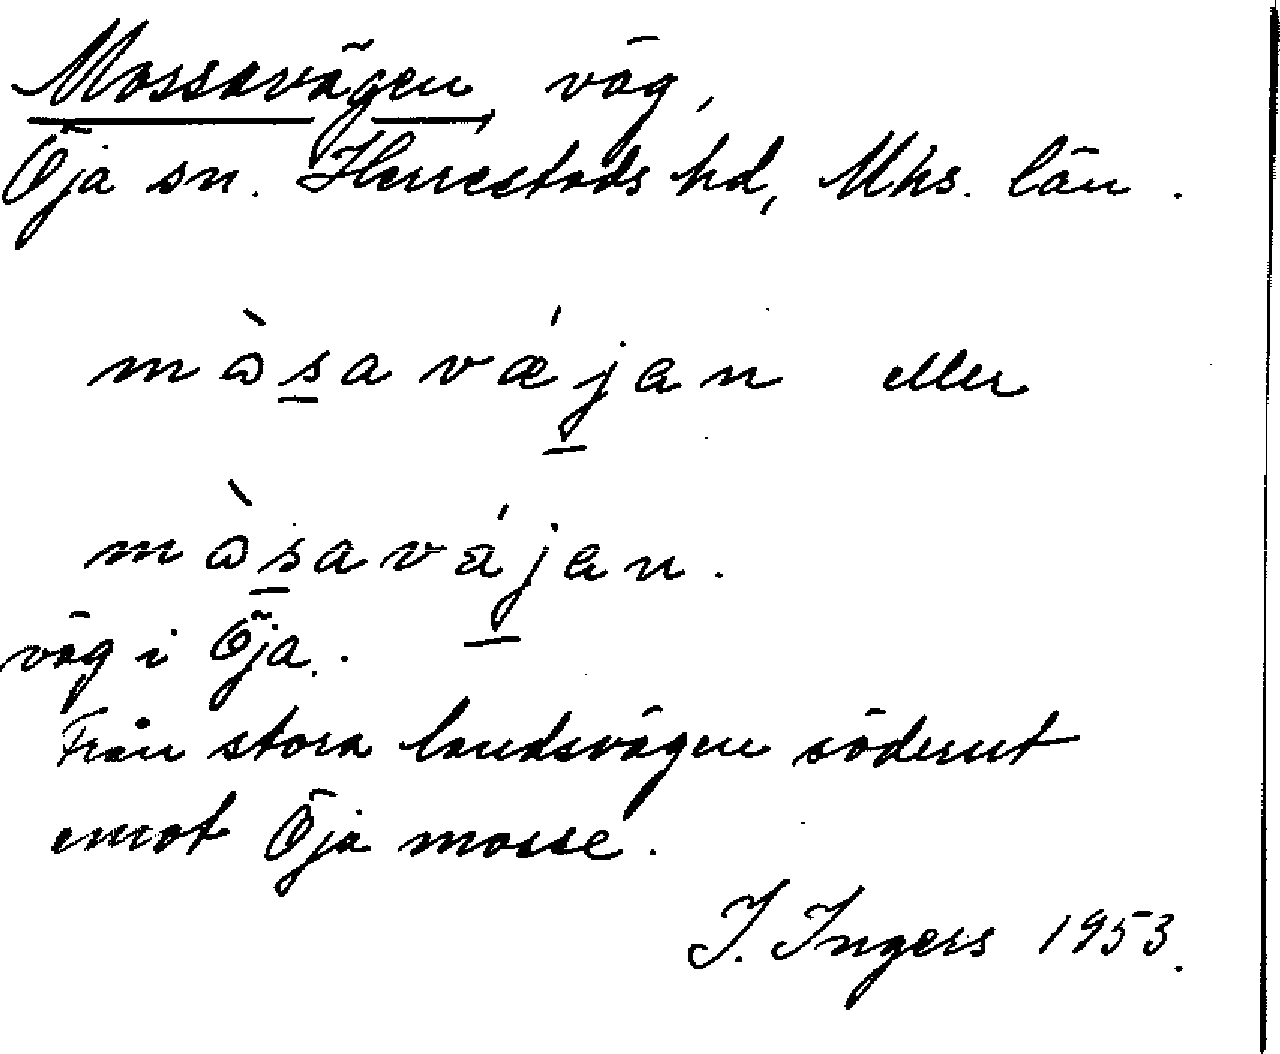 Mossavägen, väg,
Öja sn. Herrestads hd, Mhs. län.
mɷ̀savǽjan eller
mɷ̀savájan.
väg i Öja.
Från stora landsvägen söderut
emot Öja mosse.
I. Ingers 1953.